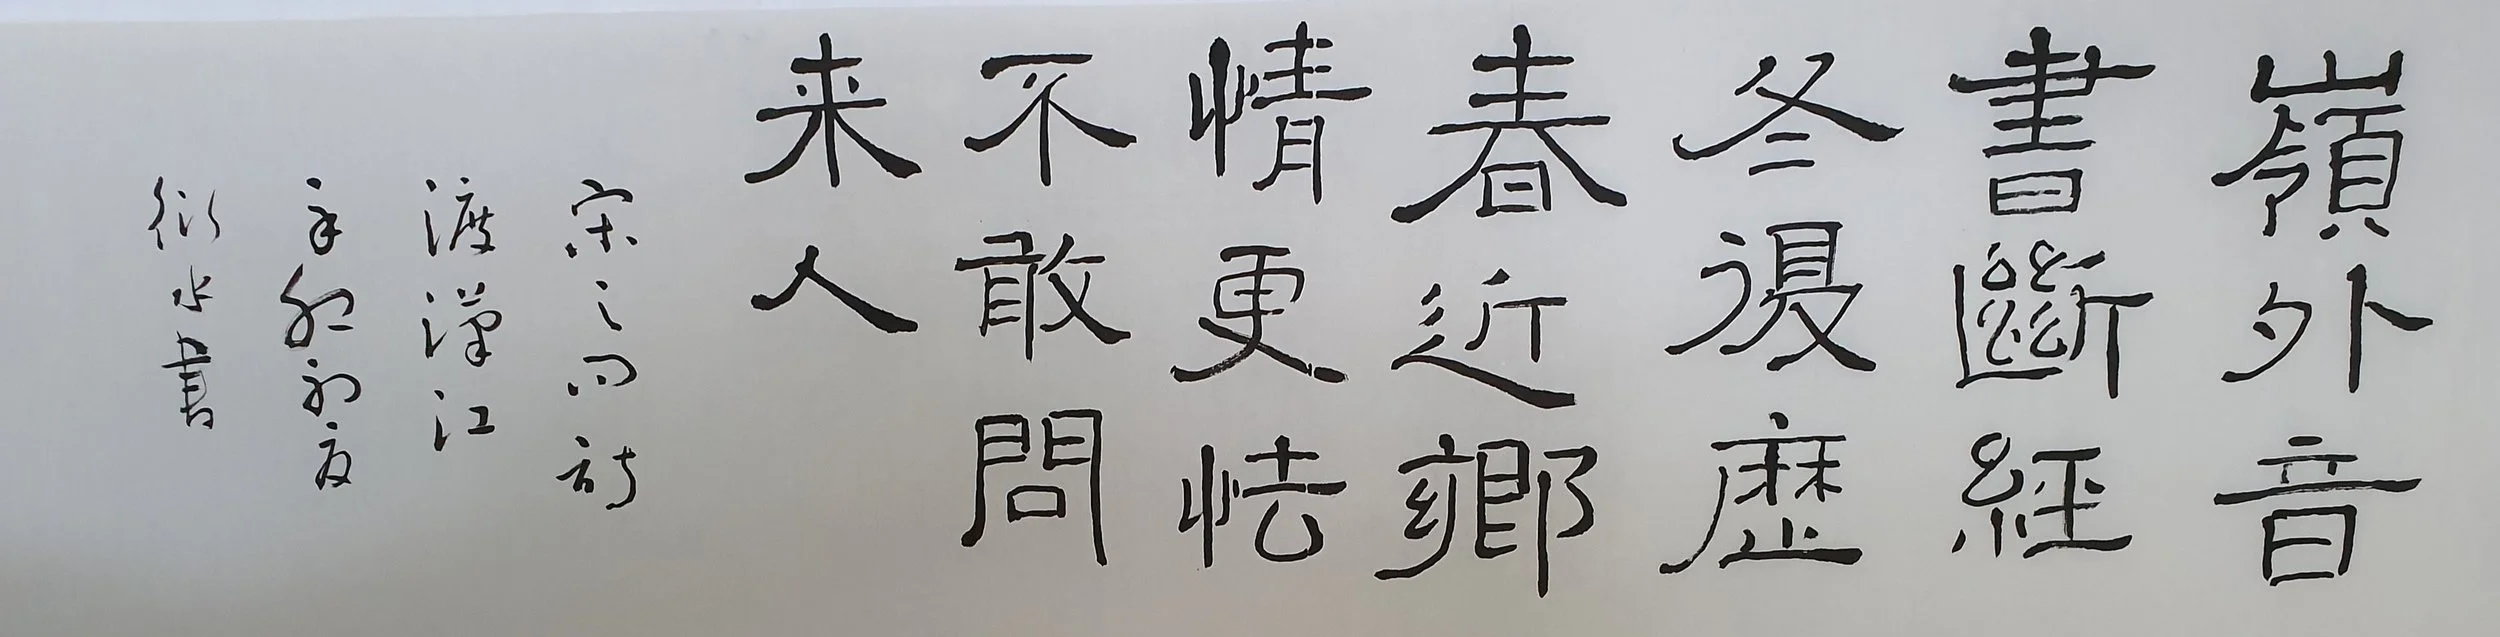 嶺外音
書斷經
冬復歷
春近鄉
情更怯
不敢問
来人
宋之问詩
渡漢江
辛初夏
衍水書